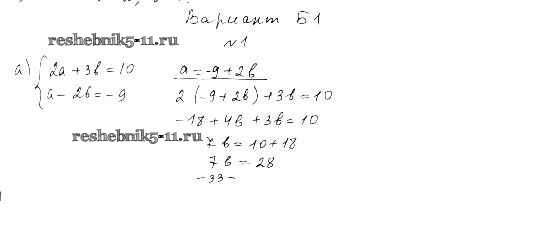 Вариант Б1
reshebnik5-11.ru
№1
а) { 2a + 3b = 10
a - 2b = -9
a = -9 + 2b
2 (-9 + 2b) + 3b = 10
-18 + 4b + 3b = 10
reshebnik5-11.ru
7b = 10 + 18
7b = 28
-33-